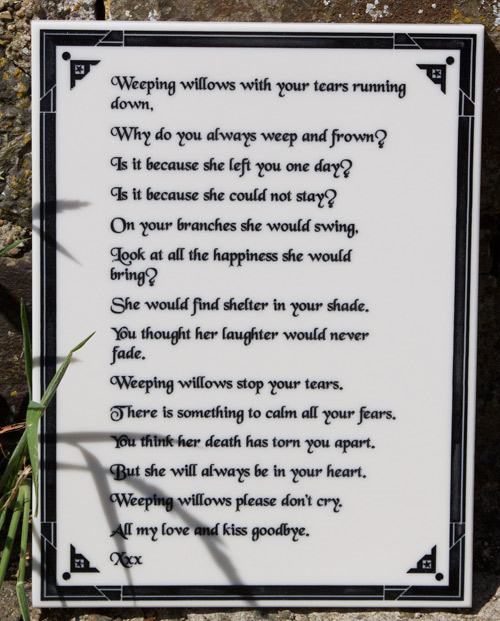 Weeping willows with your tears running
down,
Why do you always weep and frown?
Is it because she left you one day?
Is it because she could not stay?
On your branches she would swing,
Look at all the happiness she would
bring?
She would find shelter in your shade.
You thought her laughter would never
fade.
Weeping willows stop your tears.
There is something to calm all your fears.
You think her death has torn you apart.
But she will always be in your heart.
Weeping willows please don't cry.
All my love and kiss goodbye.
Xxx